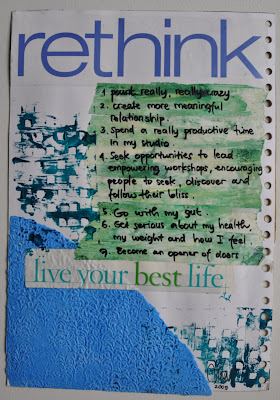 rethink
1 paint really, really crazy
2. create more meaningful
relationship.
3. Spend a really productive time
in my studio
4. Seek opportunities to lead
empowering workshops, encouraging
people to seek, discover and
follow their bliss.
5. Go with my gut.
6. Get serious about my health,
my weight and how I feel
7. Become an opener of doors
live your best life
2009